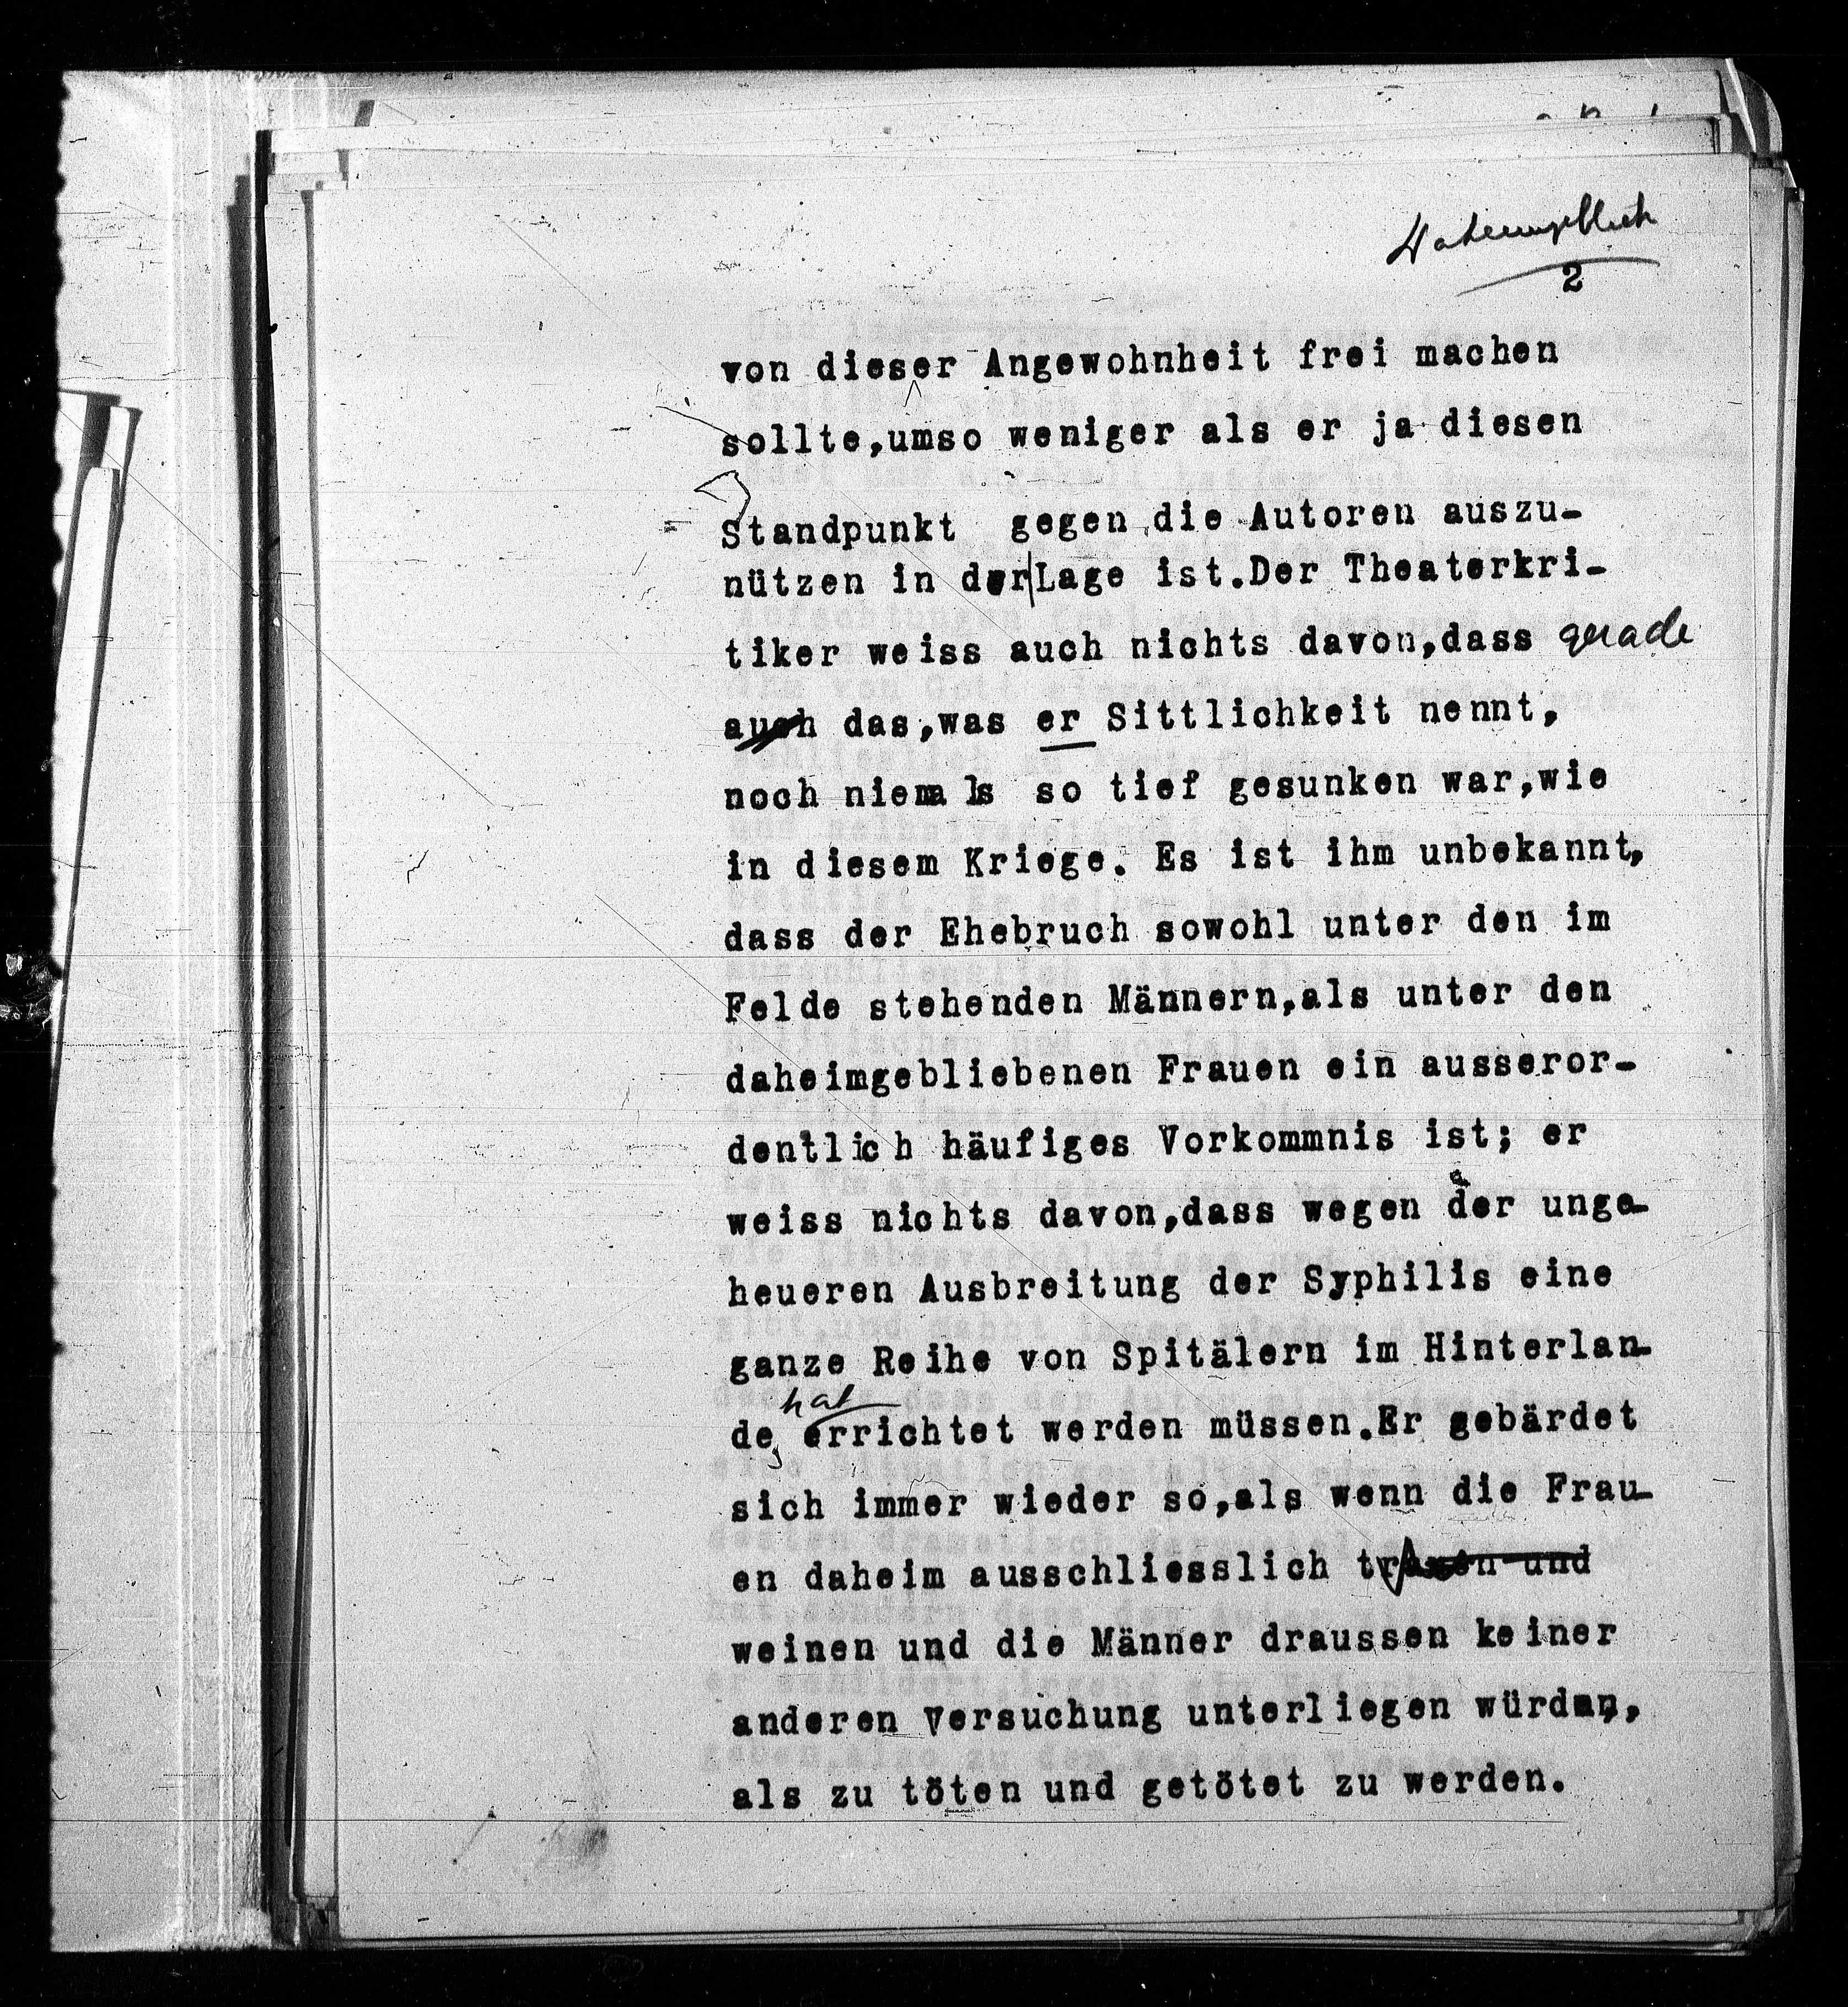 2
von dieser Angewohnheit frei machen
sollte,umso weniger als er ja diesen
Standpunkt gegen die Autoren auszu-
nützen in der Lage ist.Der Theaterkri-
tiker weiss auch nichts davon,dass gerade
auch das,was er Sittlichkeit nennt,
noch niemals so tief gesunken war,wie
in diesem Kriege. Es ist ihm unbekannt,
dass der Ehebruch sowohl unter den im
Felde stehenden Männern,als unter den
daheimgebliebenen Frauen ein ausseror-
dentlich häufiges Vorkommnis ist; er
weiss nichts davon,dass wegen der unge-
heueren Ausbreitung der Syphilis eine
ganze Reihe von Spitälern im Hinterlan-
hat
de errichtet werden müssen.Er gebärdet
sich immer wieder so,als wenn die Frau-
en daheim ausschliesslich und
weinen und die Männer draussen keiner
anderen Versuchung unterliegen würden,
als zu töten und getötet zu werden.